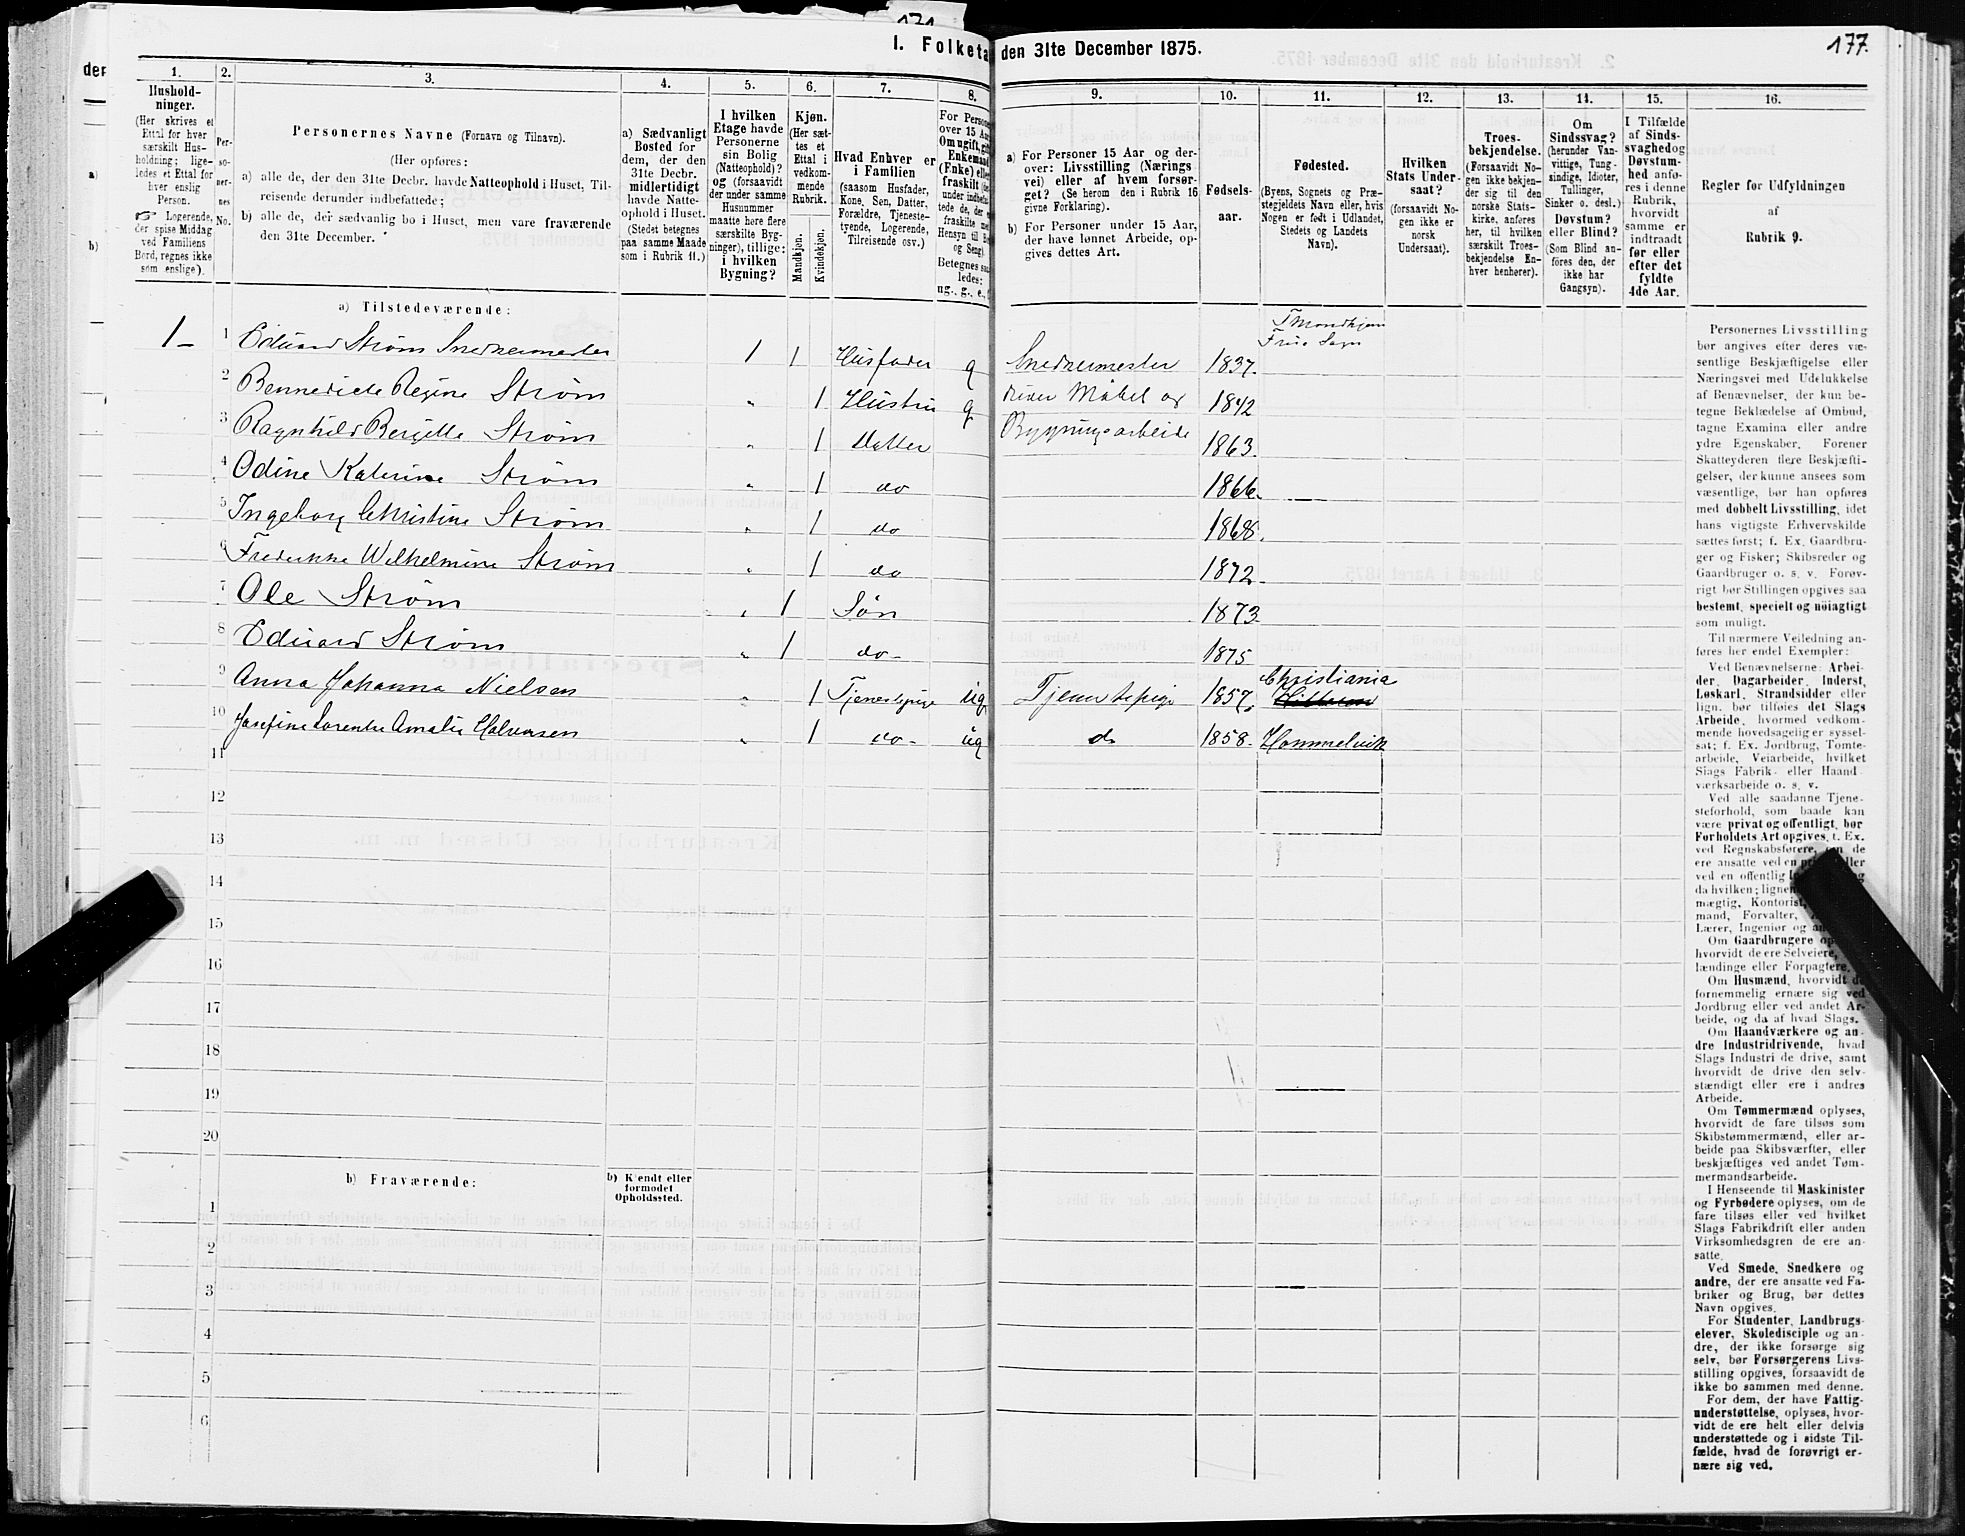 171
177.
I. Folketa
den 31te December 1875.
der
a)
b)
1.
Hushold-
ninger.
(Her skrives et
Ettal for hver
særskilt Hus-
holdning; lige-
ledes et Ettal for
hver enslig
Person.
☞ Logerende,
der spise Middag
ved Familiens
Bord, regnes ikke
som enslige).
2.
Per-
so-
ner-
nes
No.
3.
Personernes Navne (Fornavn og Tilnavn).
(Her opføres:
a) alle de, der den 31te Decbr. havde Natteophold i Huset, Til-
reisende derunder indbefattede;
b) alle de, der sædvanlig bo i Huset, men vare fraværende
den 31te December.
4.
a) Sædvanligt
Bosted for
dem, der den
31te Decbr.
midlertidigt
havde Natte-
ophold i Huset.
(Stedet betegnes
paa samme Maade
som i Rubrik 11.)
5.
I hvilken
Etage havde
Personerne
sin Bolig
(Natteophold)?
og (forsaavidt
der under samme
Husnummer
maatte høre flere
særskilte Byg-
ninger), tillige:
i hvilken
Bygning?
6.
Kjøn.
(Her sæt-
tes et
Ettal i
vedkom-
mende
Rubrik.
Mandkjøn.
Kvindekjøn.
7.
Hvad Enhver er
i Familien
(saasom Husfader,
Kone, Søn, Datter,
Forældre, Tjeneste-
tyende, Logerende,
Tilreisende osv.)
8.
For Persone
over 15 Aa
Om ugift, gift
Enkemand
(Enke) elle
fraskilt (de
under indbefa
tede de, der e
fraskilte me
Hensyn til Bo
og Seng).
Betegnes saa
ledes:
ug., g., e.,
9.
a) For Personer 15 Aar og der-
over: Livsstilling (Nærings
vei) eller af hvem forsør-
get? (Se herom den i Rubrik 16
givne Forklaring).
b) For Personer under 15 Aar,
der have lønnet Arbeide, op-
gives dettes Art.
10.
Fødsels-
aar.
11.
Fødested.
(Byens, Sognets og Præ-
stegjeldets Navn eller, hvis
Nogen er født i Udlandet,
Stedets og Landets
Navn).
12.
Hvilken
Stats Under-
saat?
(forsaavidt No-
gen ikke er
norsk
Undersaat).
13.
Troes-
bekjendelse.
(Forsaavidt No-
gen ikke bekjen-
der sig til den
norske Stats-
kirke, anføres
her, til hvilken
særskilt Troes-
bekjendelse En-
hver henhører).
14.
Om
Sindssvag?
(herunder Van-
vittige, Tung-
sindige, Idioter,
Tullinger,
Sinker o. desl.)
Døvstum?
eller Blind?
(Som Blind an-
føres den, der
ikke har
Gangsyn).
15.
I Tilfælde
af Sinds-
svaghed og
Døvstum-
hed anfø-
res i denne
Rubrik,
hvorvidt
samme er
indtraadt
før eller
efter det
fyldte
4de Aar.
16.
Regler for Udfyldningen
af
Rubrik 9.
a) Tilstedeværende:
1- 1 Eduard Strøm Snedkermester 1 1 Husfader g Snedkermester 1837. Trondhjem Frue Sogn
2 Bennedicte Regine Strøm „ 1 Hustru g driver Møbel og 1842
3 Ragnhild Bergitte Strøm „ 1 Datter Bygningsarbeide 1863.
4 Odine Katrine Strøm „ 1 do 1866.
5 Ingeborg Christine Strøm „ 1 do 1868.
6 Fredrikke Wilhelmine Strøm „ 1 do 1872.
7 Ole Strøm „ 1 Søn 1873.
8 Eduard Strøm „ 1 do- 1875
9 Anna Johanna Nielsen „ 1 Tjenestepige ug Tjenestepige 1857. Christiania
10 Josefine Lorentse Amalie Halvorsen „ 1 do- ug do 1858. Hommelvik
11
12
13
14
15
16
17
18
19
20
b) Fraværende:
b) Kjendt eller
formodet
Opholdssted.
1
2
3
4
5
6
Personernes Livsstilling
bør angives efter deres væ-
sentlige Beskjæftigelse eller
Næringsvei med Udelukkelse
af Benævnelser, der kun be-
tegne Beklædelse af Ombud,
tagne Examina eller andre
ydre Egenskaber. Forener
Skatteyderen flere Beskjæfti-
gelser, der kunne ansees som
væsentlige, bør han opføres
med dobbelt Livsstilling, idet
hans vigtigste Erhvervskilde
sættes først; f. Ex. Gaardbru-
ger og Fisker; Skibsreder og
Gaardbruger o. s. v. Forøv-
rigt bør Stillingen opgives saa
bestemt, specielt og nöiagtigt
som muligt.
Til nærmere Veiledning an-
føres her endel Exempler:
Ved Benævnelserne: Arbei-
der, Dagarbeider, Inderst,
Løskarl, Strandsidder eller
lign. bør tilføies det Slags
Arbeide, hvormed vedkom-
mende hovedsagelig er syssel-
sat; f. Ex. Jordbrug, Tomte-
arbeide, Veiarbeide, hvilket
Slags Fabrik- eller Haand-
værksarbeide o. s. v.
Ved alle saadanne Tjene-
steforhold, som baade kan
være privat og offentligt, bør
Forholdets Art opgives, t. Ex.
ved Regnskabsførere, om de
ere ansatte ved en privat eller
ved en offentlig
da hvilken; lignen
mægtig, Kontorist,
mand, Forvalter,
Lærer, Ingeniør og
Om Gaardbrugere op
hvorvidt de ere Selveiere,
lændinge eller Forpagtere.
Om Husmænd, hvorvidt de
fornemmelig ernære sig ved
Jordbrug eller ved andet Ar-
beide, og da af hvad Slags.
Om Haandværkere og an-
dre Industridrivende, hvad
Slags Industri de drive, samt
hvorvidt de drive den selv-
stændigt eller ere i andres
Arbeide.
Om Tømmermænd oplyses,
hvorvidt de fare tilsøs som
Skibstømmermænd, eller ar-
beide paa Skibsværfter, eller
beskjæftiges ved andet Tøm-
mermandsarbeide.
I Henseende til Maskinister
og Fyrbødere oplyses, om de
fare tilsøs eller ved hvilket
Slags Fabrikdrift eller anden
Virksomhedsgren de ere an-
satte.
Ved Smede, Snedkere og
andre, der ere ansatte ved Fa-
briker og Brug, bør dettes
Navn opgives.
For Studenter, Landbrugs-
elever, Skoledisciple og an-
dre, der ikke forsørge sig
selv, bør Forsørgerens Livs-
stilling opgives, forsaavidt de
ikke bo sammen med denne.
For dem, der have Fattig-
understøttelse, oplyses, hvor-
vidt de ere helt eller delvis
understøttede og i sidste Til-
fælde, hvad de forøvrigt er-
nære sig ved.